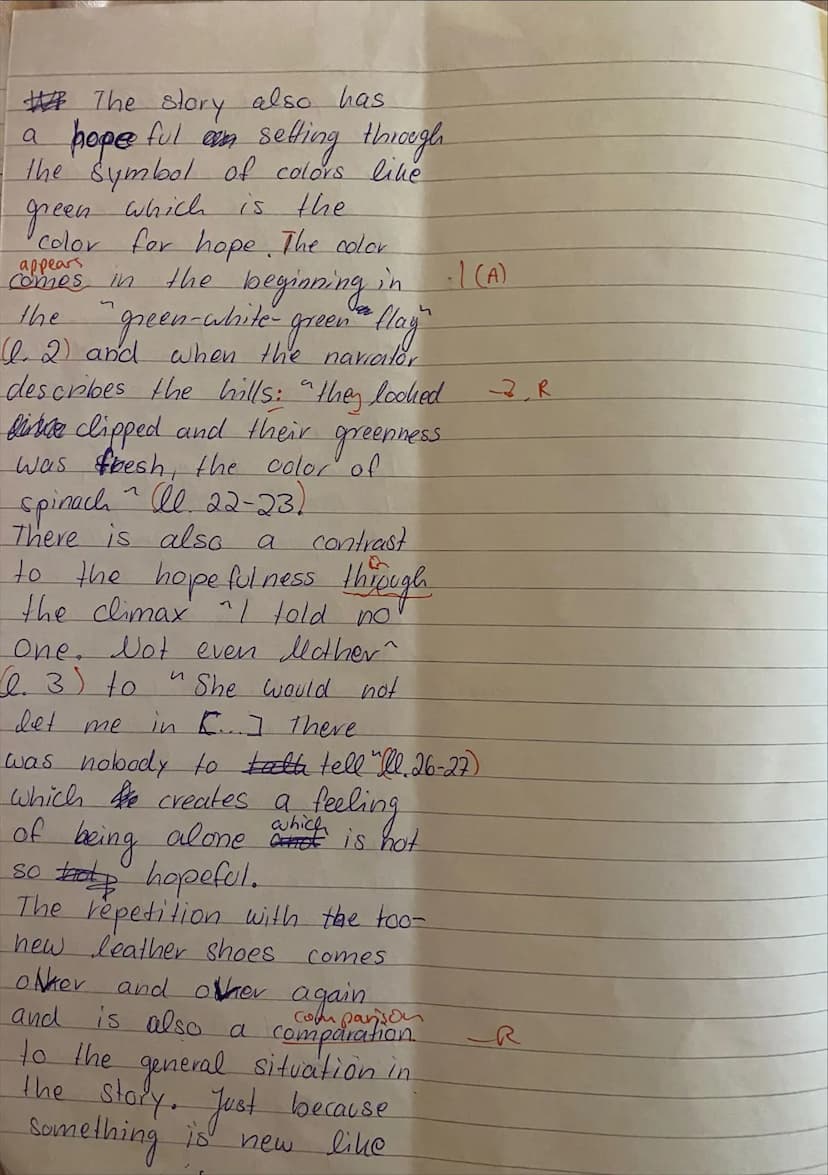 The story also has
a hopeful setting through
the symbol of colors like
green which is the
color for hope. The color
appears
comes in the beginning in -1 (A)
the "green-white-green" flag"
(l. 2) and when the narrator
describes the hills: "they looked -2, R
clipped and their greenness
was fresh, the color of
spinach" (ll. 22-23)
There is also a contrast
to the hopefulness through
the climax "I told no
one. Not even Mother"
(l. 3) to "She would not
let me in [...] There
was nobody to tell" (ll. 26-27)
which creates a feeling
of being alone which is not
so hopeful.
The repetition with the too-
new leather shoes comes
other and other again
comparison
and is also a comparation -R
to the general situation in
the story. Just because
something is new like